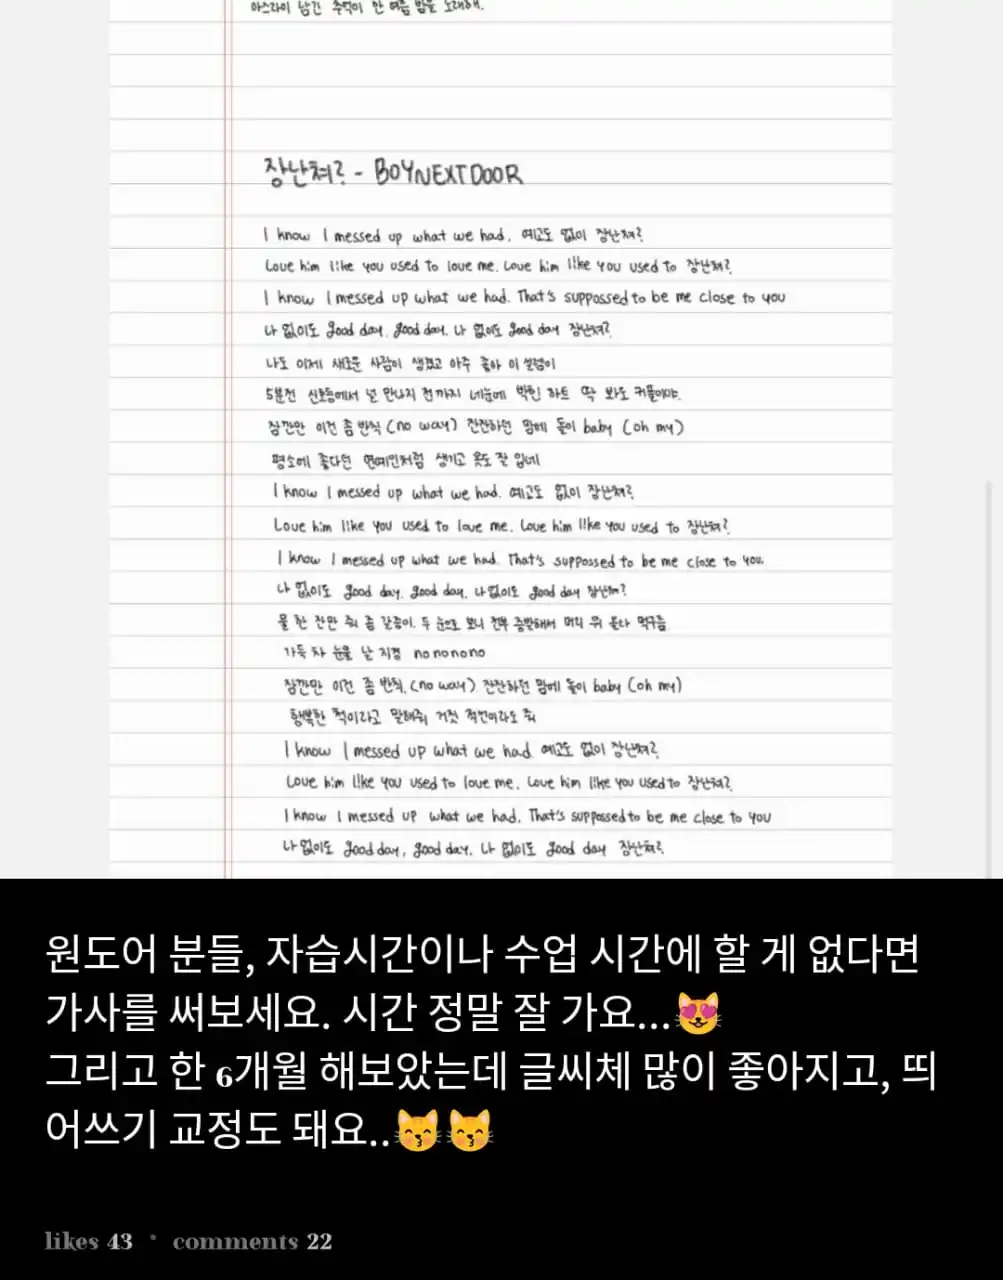 아스라이 남긴 추억이 한 여름 밤을 노래해.
장난쳐? - BOYNEXTDOOR
I know I messed up what we had. 예고도 없이 장난쳐?
Love him like you used to love me. Love him like you used to 장난쳐?
I know I messed up what we had. That's suppossed to be me close to you
나 없이도 good day, good day. 나 없이도 good day 장난쳐?
나도 이제 새로운 사람이 생겼고 아주 좋아 이 설렘이
5분전 신호등에서 널 만나지 전까지 네눈에 박힌 하트 딱 봐도 커플이야.
잠깐만 이건 좀 반칙 (no way) 잔잔하던 맘에 돌이 baby (oh my)
평소에 좋다던 연예인처럼 생기고 옷도 잘 입네
I know I messed up what we had. 예고도 없이 장난쳐?
Love him like you used to love me. Love him like you used to 장난쳐?
I know I messed up what we had. That's suppossed to be me close to you.
나 없이도 good day, good day. 나 없이도 good day 장난쳐?
물 한 잔만 줘 좀 갈증이. 두 눈으로 보니 전부 증발해서 머리 위 돈다 먹구름
가득 차 눈물 날 지경 no no no no
잠깐만 이건 좀 반칙. (no way) 잔잔하던 맘에 돌이 baby (oh my)
행복한 척이라고 말해줘 거짓 적선이라도 줘
I know I messed up what we had 예고도 없이 장난쳐?
Love him like you used to love me. Love him like you used to 장난쳐?
I know I messed up what we had. That's suppossed to be me close to you
나 없이도 good day, good day. 나 없이도 good day 장난쳐?
원도어 분들, 자습시간이나 수업 시간에 할 게 없다면
가사를 써보세요. 시간 정말 잘 가요...😻
그리고 한 6개월 해보았는데 글씨체 많이 좋아지고, 띄
어쓰기 교정도 돼요..😽😽
likes 43 • comments 22